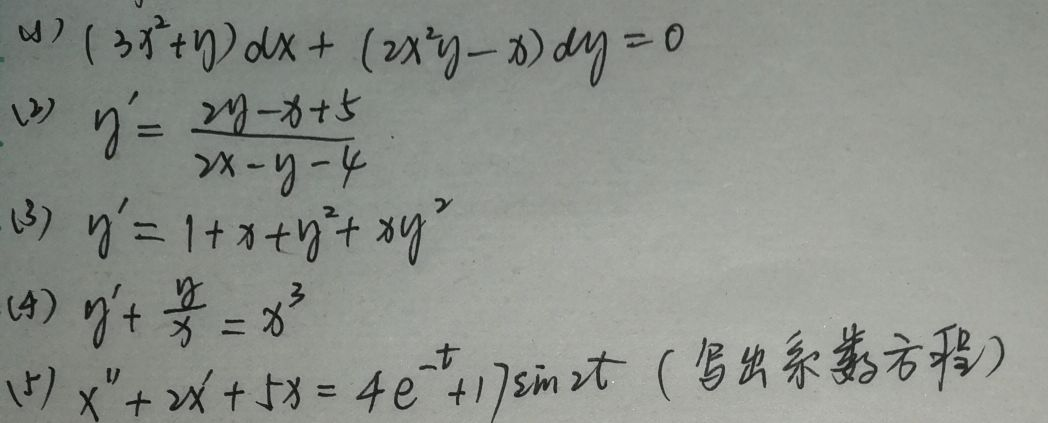 (1) (3x²+y)dx + (2x²y-x)dy = 0
(2) y' = (2y-x+5)/(2x-y-4)
(3) y' = 1+x+y²+xy²
(4) y' + y/x = x³
(5) x'' + 2x' + 5x = 4e^{-t} + 17sin2t (写出系数方程)